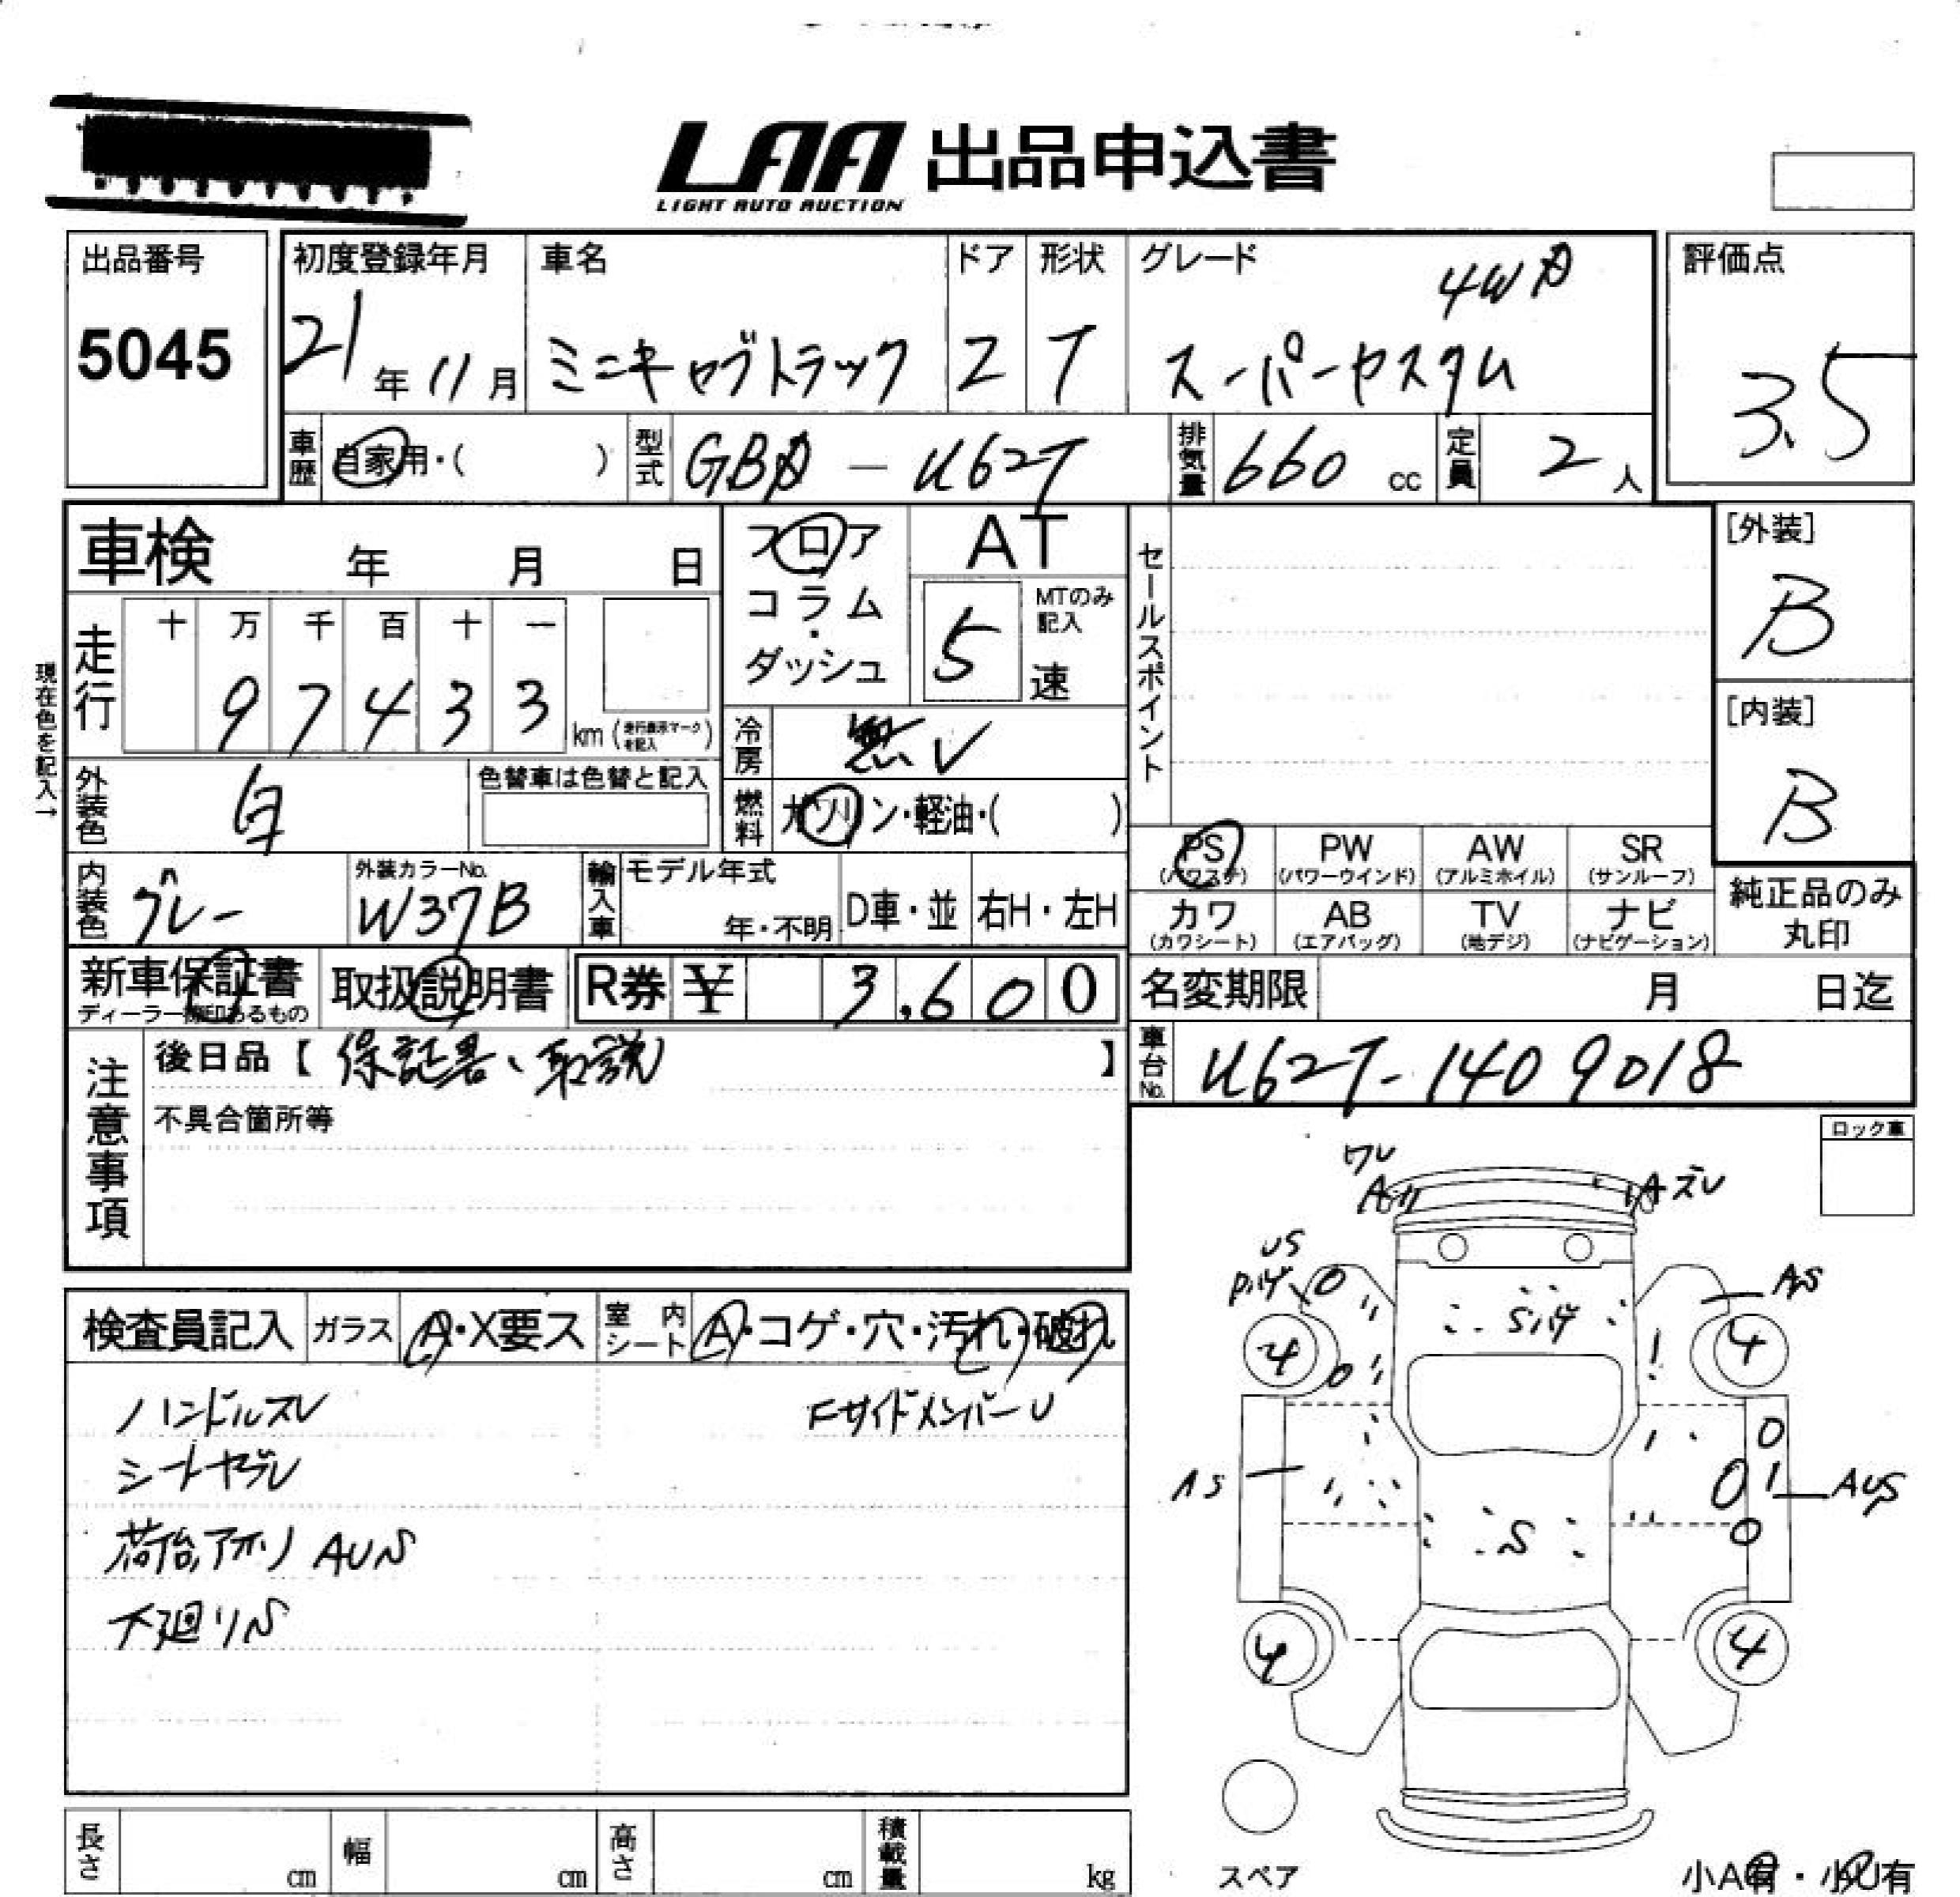 LAA 出品申込書
LIGHT AUTO AUCTION
出品番号
5045
初度登録年月
21年11月
車名
ミニキャブトラック
ドア
2
形状
T
グレード
4WD
スーパーカスタム
評価点
3.5
車歴
自家用・( )
型式
GBD-U62T
排気量
660 cc
定員
2人
車検 年 月 日
フロア
コラム
・
ダッシュ
AT
5
MTのみ
記入
速
セールスポイント
[外装]
B
[内装]
B
現在色を記入→
走行
十 万 千 百 十 一
9 7 4 3 3
km (走行表示マークを記入)
冷房
無し
外装色
白
色替車は色替と記入
燃料
ガソリン・軽油・( )
内装色
グレー
外装カラーNo.
W37B
輸入車
モデル年式
年・不明
D車・並
右H・左H
PS
(パワステ)
PW
(パワーウインド)
AW
(アルミホイル)
SR
(サンルーフ)
カワ
(カワシート)
AB
(エアバッグ)
TV
(地デジ)
ナビ
(ナビゲーション)
純正品のみ
丸印
新車保証書
ディーラー捺印あるもの
取扱説明書
R券 ¥ 3,600
名変期限 月 日迄
車台No.
U62T-1409018
注意事項
後日品【 保証書、取説 】
不具合箇所等
ロック車
検査員記入
ガラス
A・X要ス
室内
シート
A・コゲ・穴・汚れ・破れ
ハンドルスレ
FサイドメンバーU
シートヤブレ
荷台,アオリ AUS
下廻りS
ワレ
A
Aズレ
US
Pハゲ
Sハゲ
AS
4
4
AS
AUS
S
4
4
スペア
小A有・小U有
長さ cm
幅 cm
高さ cm
積載量 kg